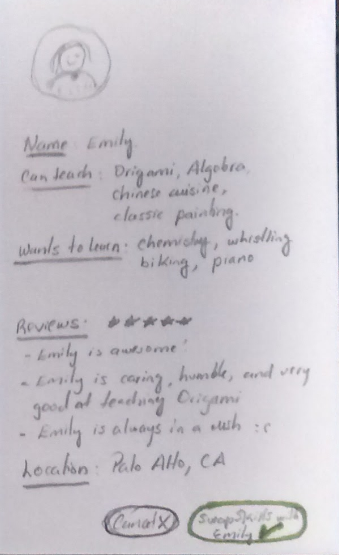 Name: Emily.
Can teach: Origami, Algebra,
chinese cuisine,
classic painting.
Wants to learn: chemistry, whistling
biking, piano
Reviews: *****
- Emily is awesome!
- Emily is caring, humble, and very
good at teaching Origami
- Emily is always in a rush :c
Location: Palo Alto, CA
Cancel X
Swap Skills with
Emily ✓